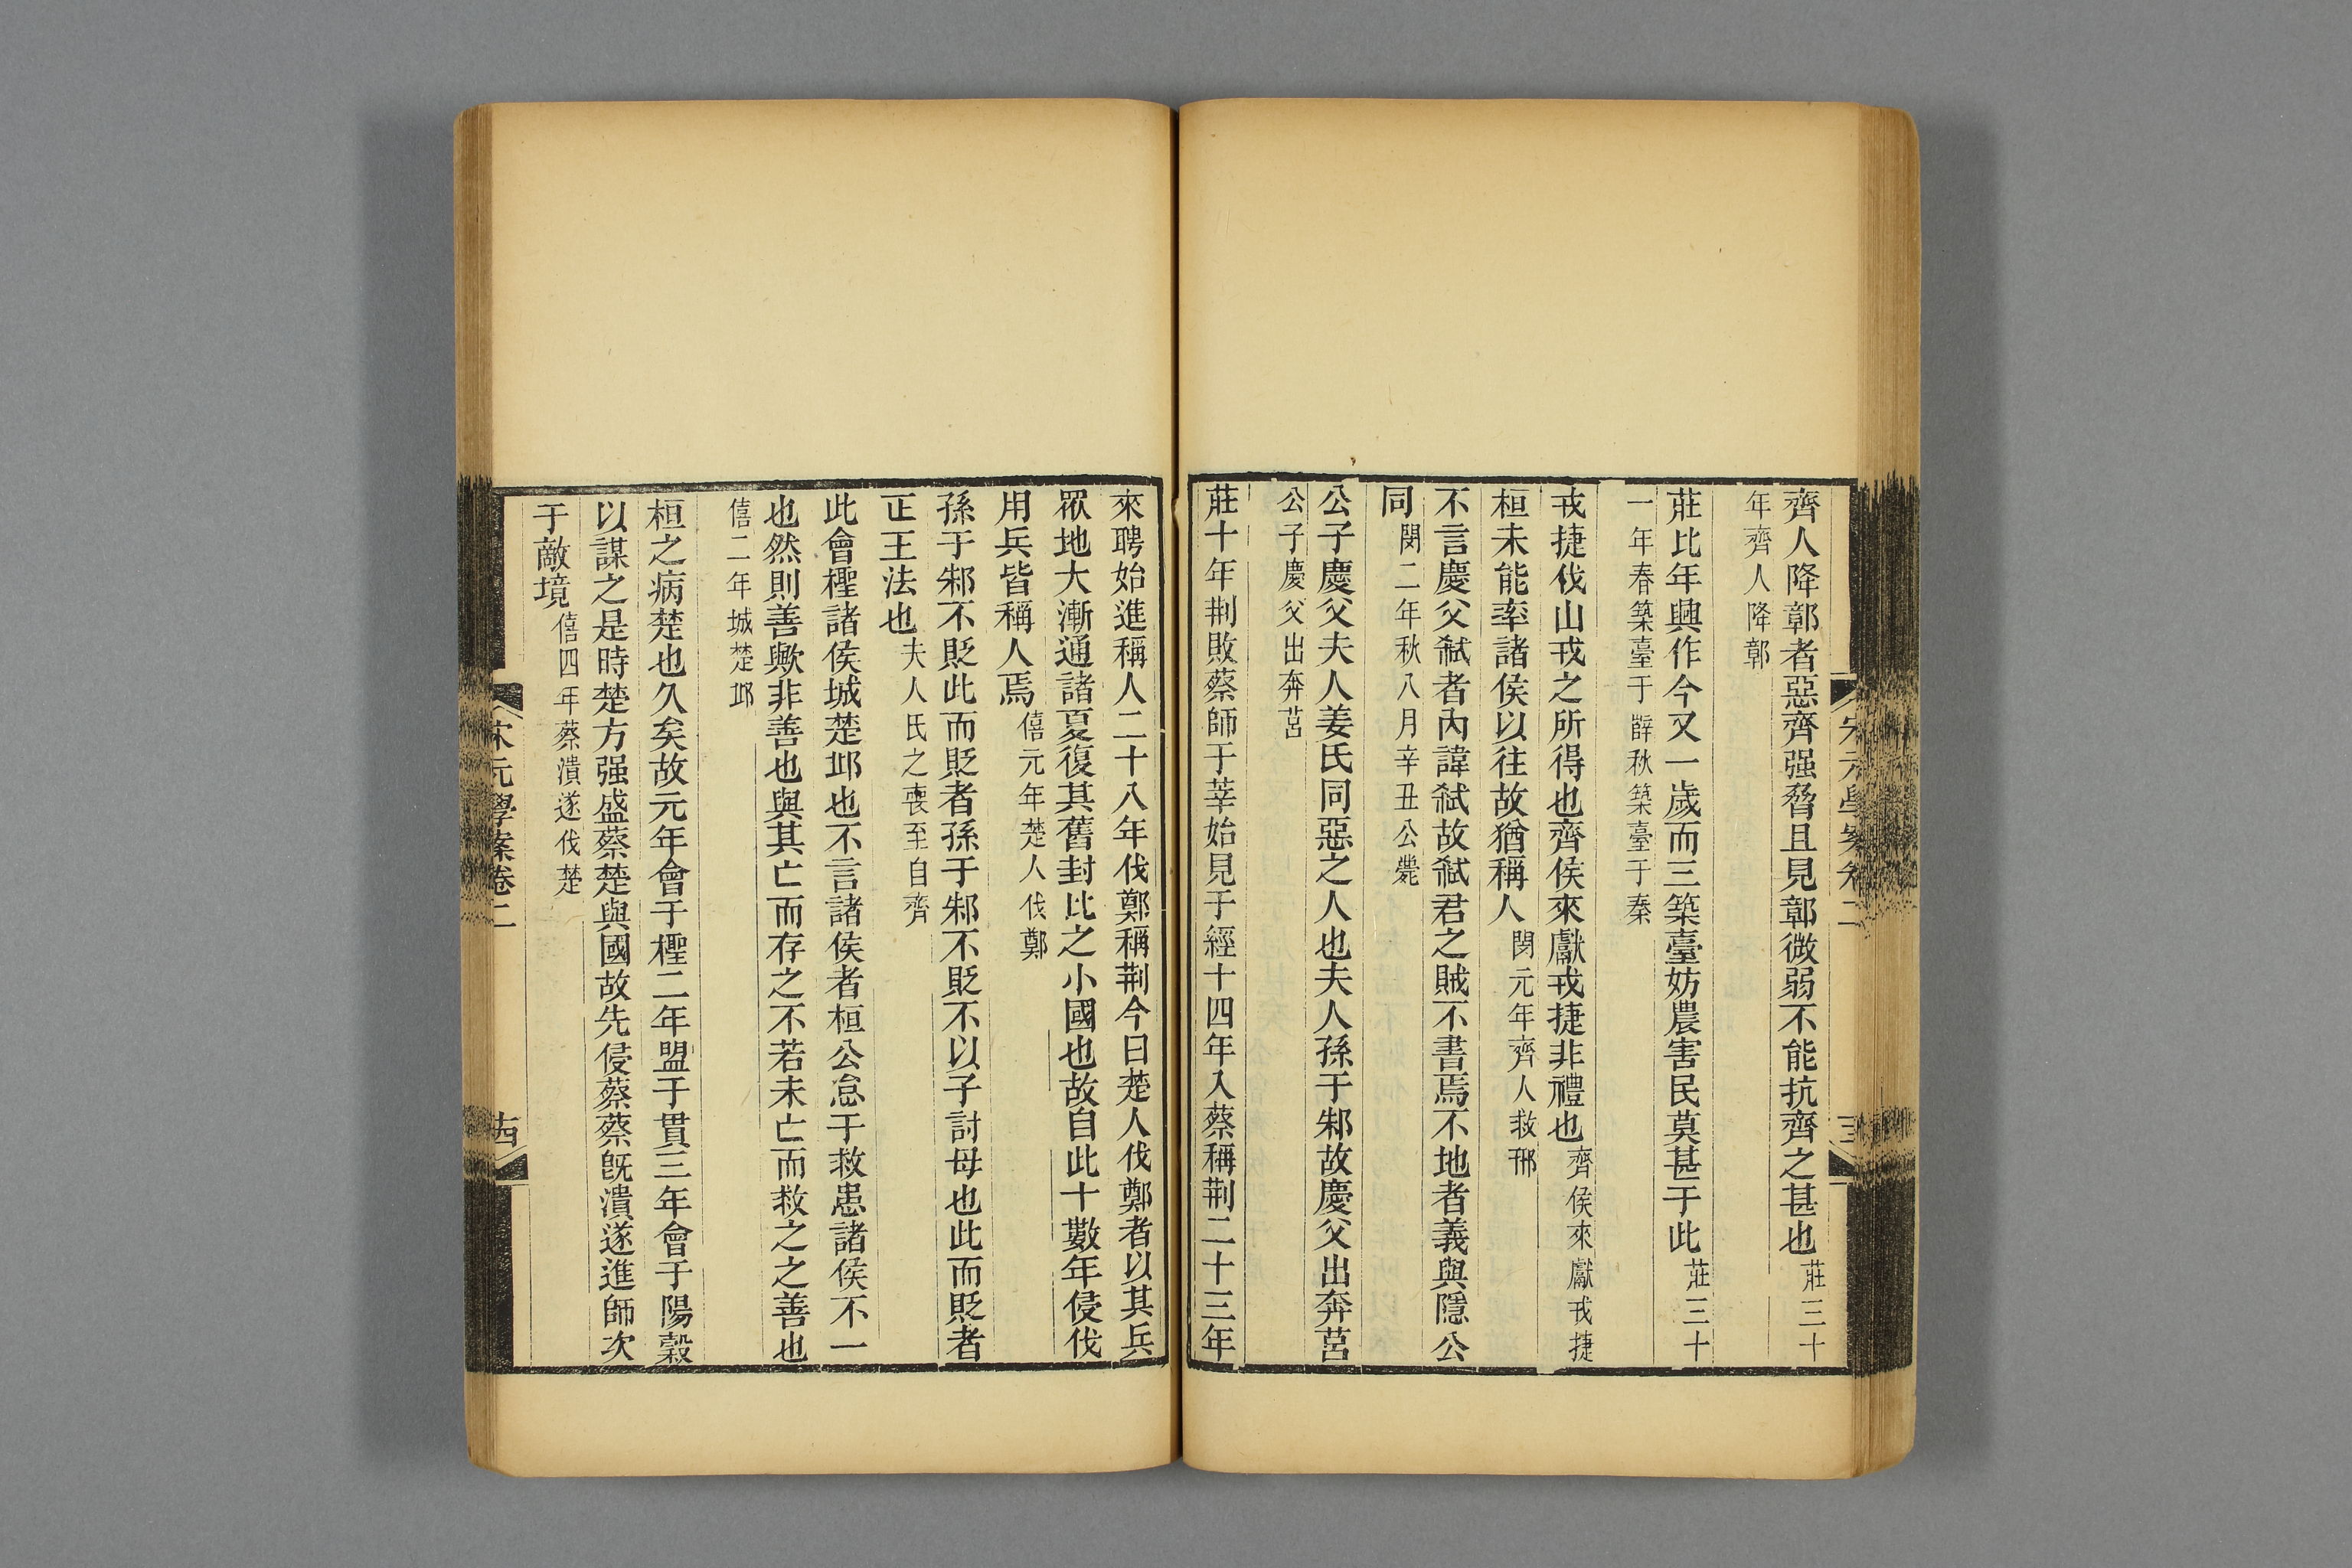 齊人降鄣者惡齊强脅且見鄣微弱不能抗齊之甚也莊三十
年齊人降鄣
莊比年興作今又一歲而三築臺妨農害民莫甚于此莊三十
一年春築臺于薜秋築臺于秦
戎捷伐山戎之所得也齊侯來獻戎捷非禮也齊侯來獻戎捷
桓未能率諸侯以往故猶稱人閔元年齊人救邢
不言慶父弑者內諱弑故弑君之賊不書焉不地者義與隱公
同閔二年秋八月辛丑公薨
公子慶父夫人姜氏同惡之人也夫人孫于邾故慶父出奔莒
公子慶父出奔莒
莊十年荆敗蔡師于莘始見于經十四年入蔡稱荆二十三年
宋元學案卷二
來聘始進稱人二十八年伐鄭稱荆今曰楚人伐鄭者以其兵
眾地大漸通諸夏復其舊封比之小國也故自此十數年侵伐
用兵皆稱人焉僖元年楚人伐鄭
孫于邾不貶此而貶者孫于邾不貶不以子討母也此而貶者
正王法也夫人氏之喪至自齊
此會檉諸侯城楚邱也不言諸侯者桓公怠于救患諸侯不一
也然則善歟非善也與其亡而存之不若未亡而救之之善也
僖二年城楚邱
桓之病楚也久矣故元年會于檉二年盟于貫三年會于陽穀
以謀之是時楚方强盛蔡楚與國故先侵蔡蔡旣潰遂進師次
于敵境僖四年蔡潰遂伐楚
宋元學案卷二
十四